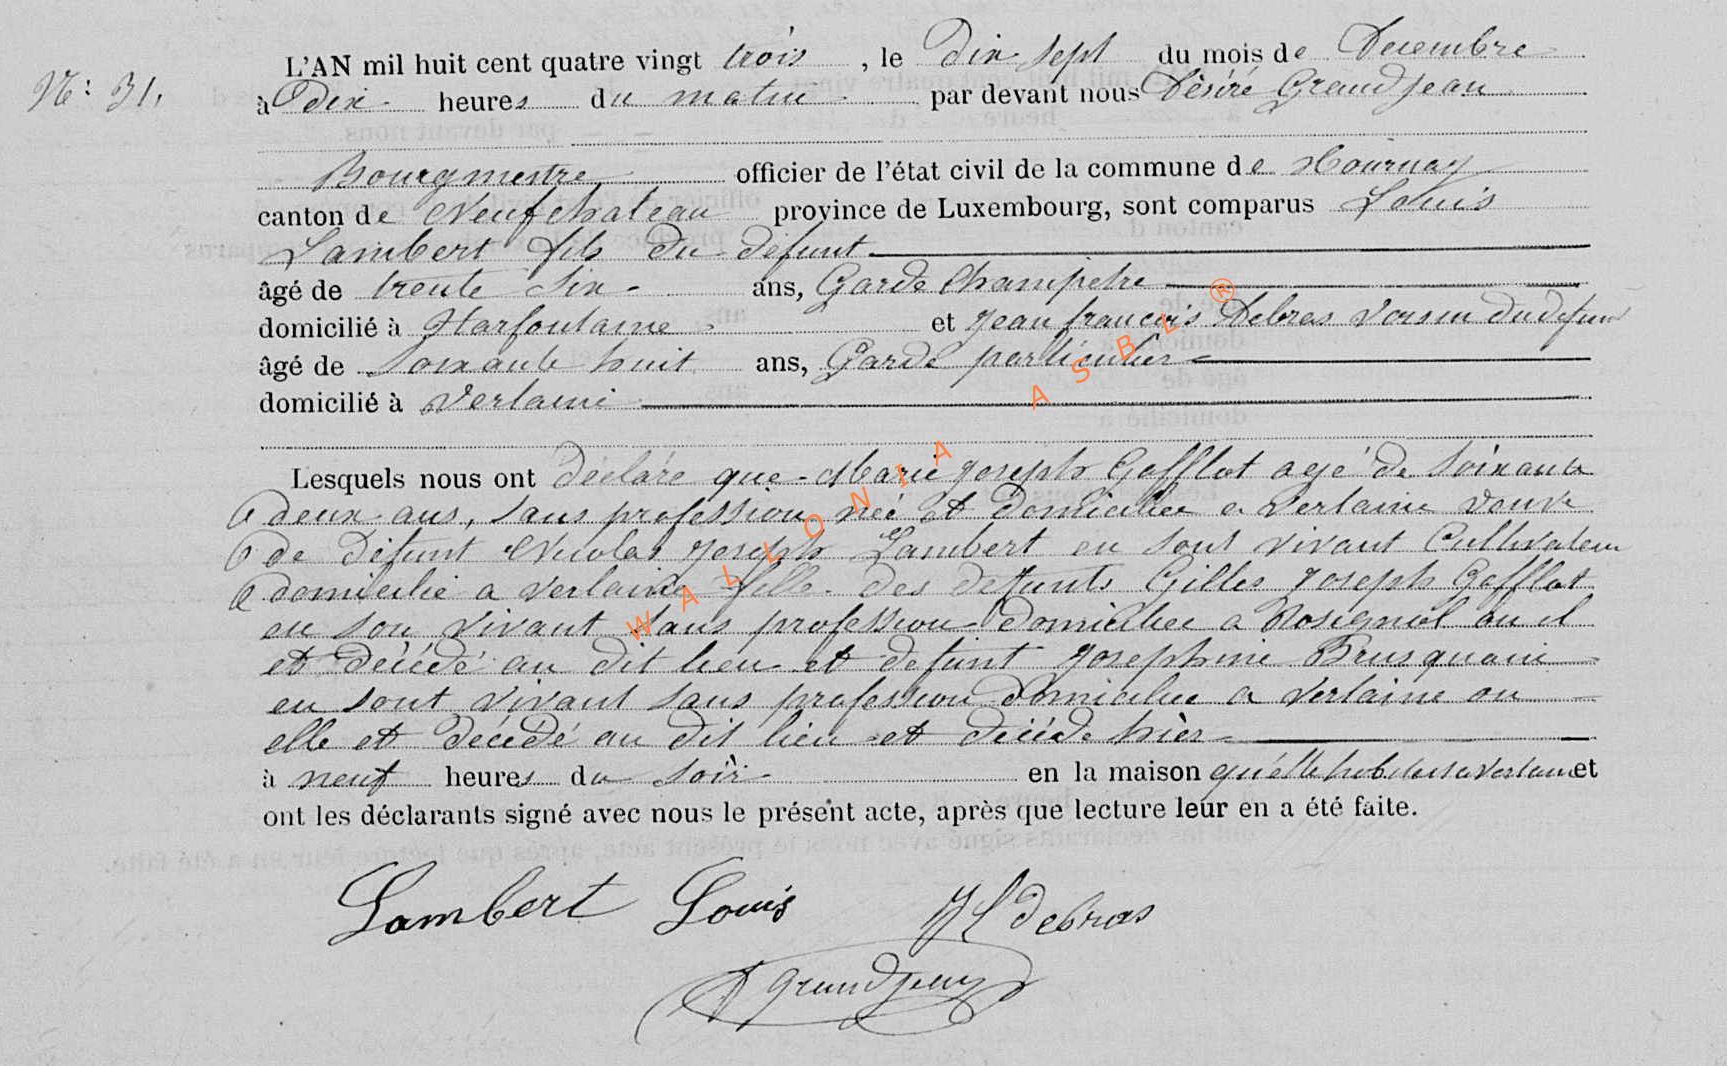 N: 31.
L'AN mil huit cent quatre vingt trois, le Dix sept du mois de Decembre
à Dix heures du matin par devant nous Désiré Grandjean
Bourgmestre officier de l'état civil de la commune de Tournay
canton de Neufchateau province de Luxembourg, sont comparus Louis
Lambert fils du defunt
âgé de trente six ans, Garde Champetre
domicilié à Harfontaine et Jean francois Debras voisin du defunt
âgé de Soixante huit ans, Garde particulier
domicilié à Verlaine
Lesquels nous ont déclaré que Marie Joseph Gofflot agé de Soixante
deux ans, sans profession née et domiciliée a Verlaine veuve
de défunt Nicolas Joseph Lambert en sont vivant Cultivateur
domicilié a Verlaine fille des defunts Gilles Joseph Gofflot
en son vivant sans profession domiciliée a Rosignol ou il
et décédé au dit lieu et defunt Josephine
en sont vivant sans profession domiciliée a Verlaine ou
elle et décédé au dit lieu et décéde hièr
à neuf heures du soir en la maison qu'elle habitait a Verlaine et
ont les déclarants signé avec nous le présent acte, après que lecture leur en a été faite.
Lambert Louis JF Debras
D Grandjean
WALLONIA ASBL ®